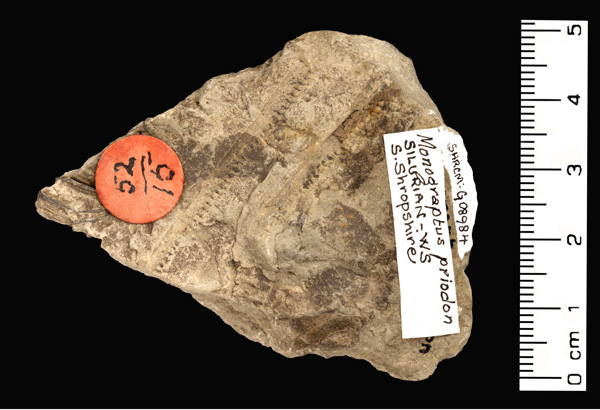 52
16
SHRCM: G 08984
Monograptus priodon
SILURIAN - WS
S. Shropshire
5
4
3
2
1
0 cm